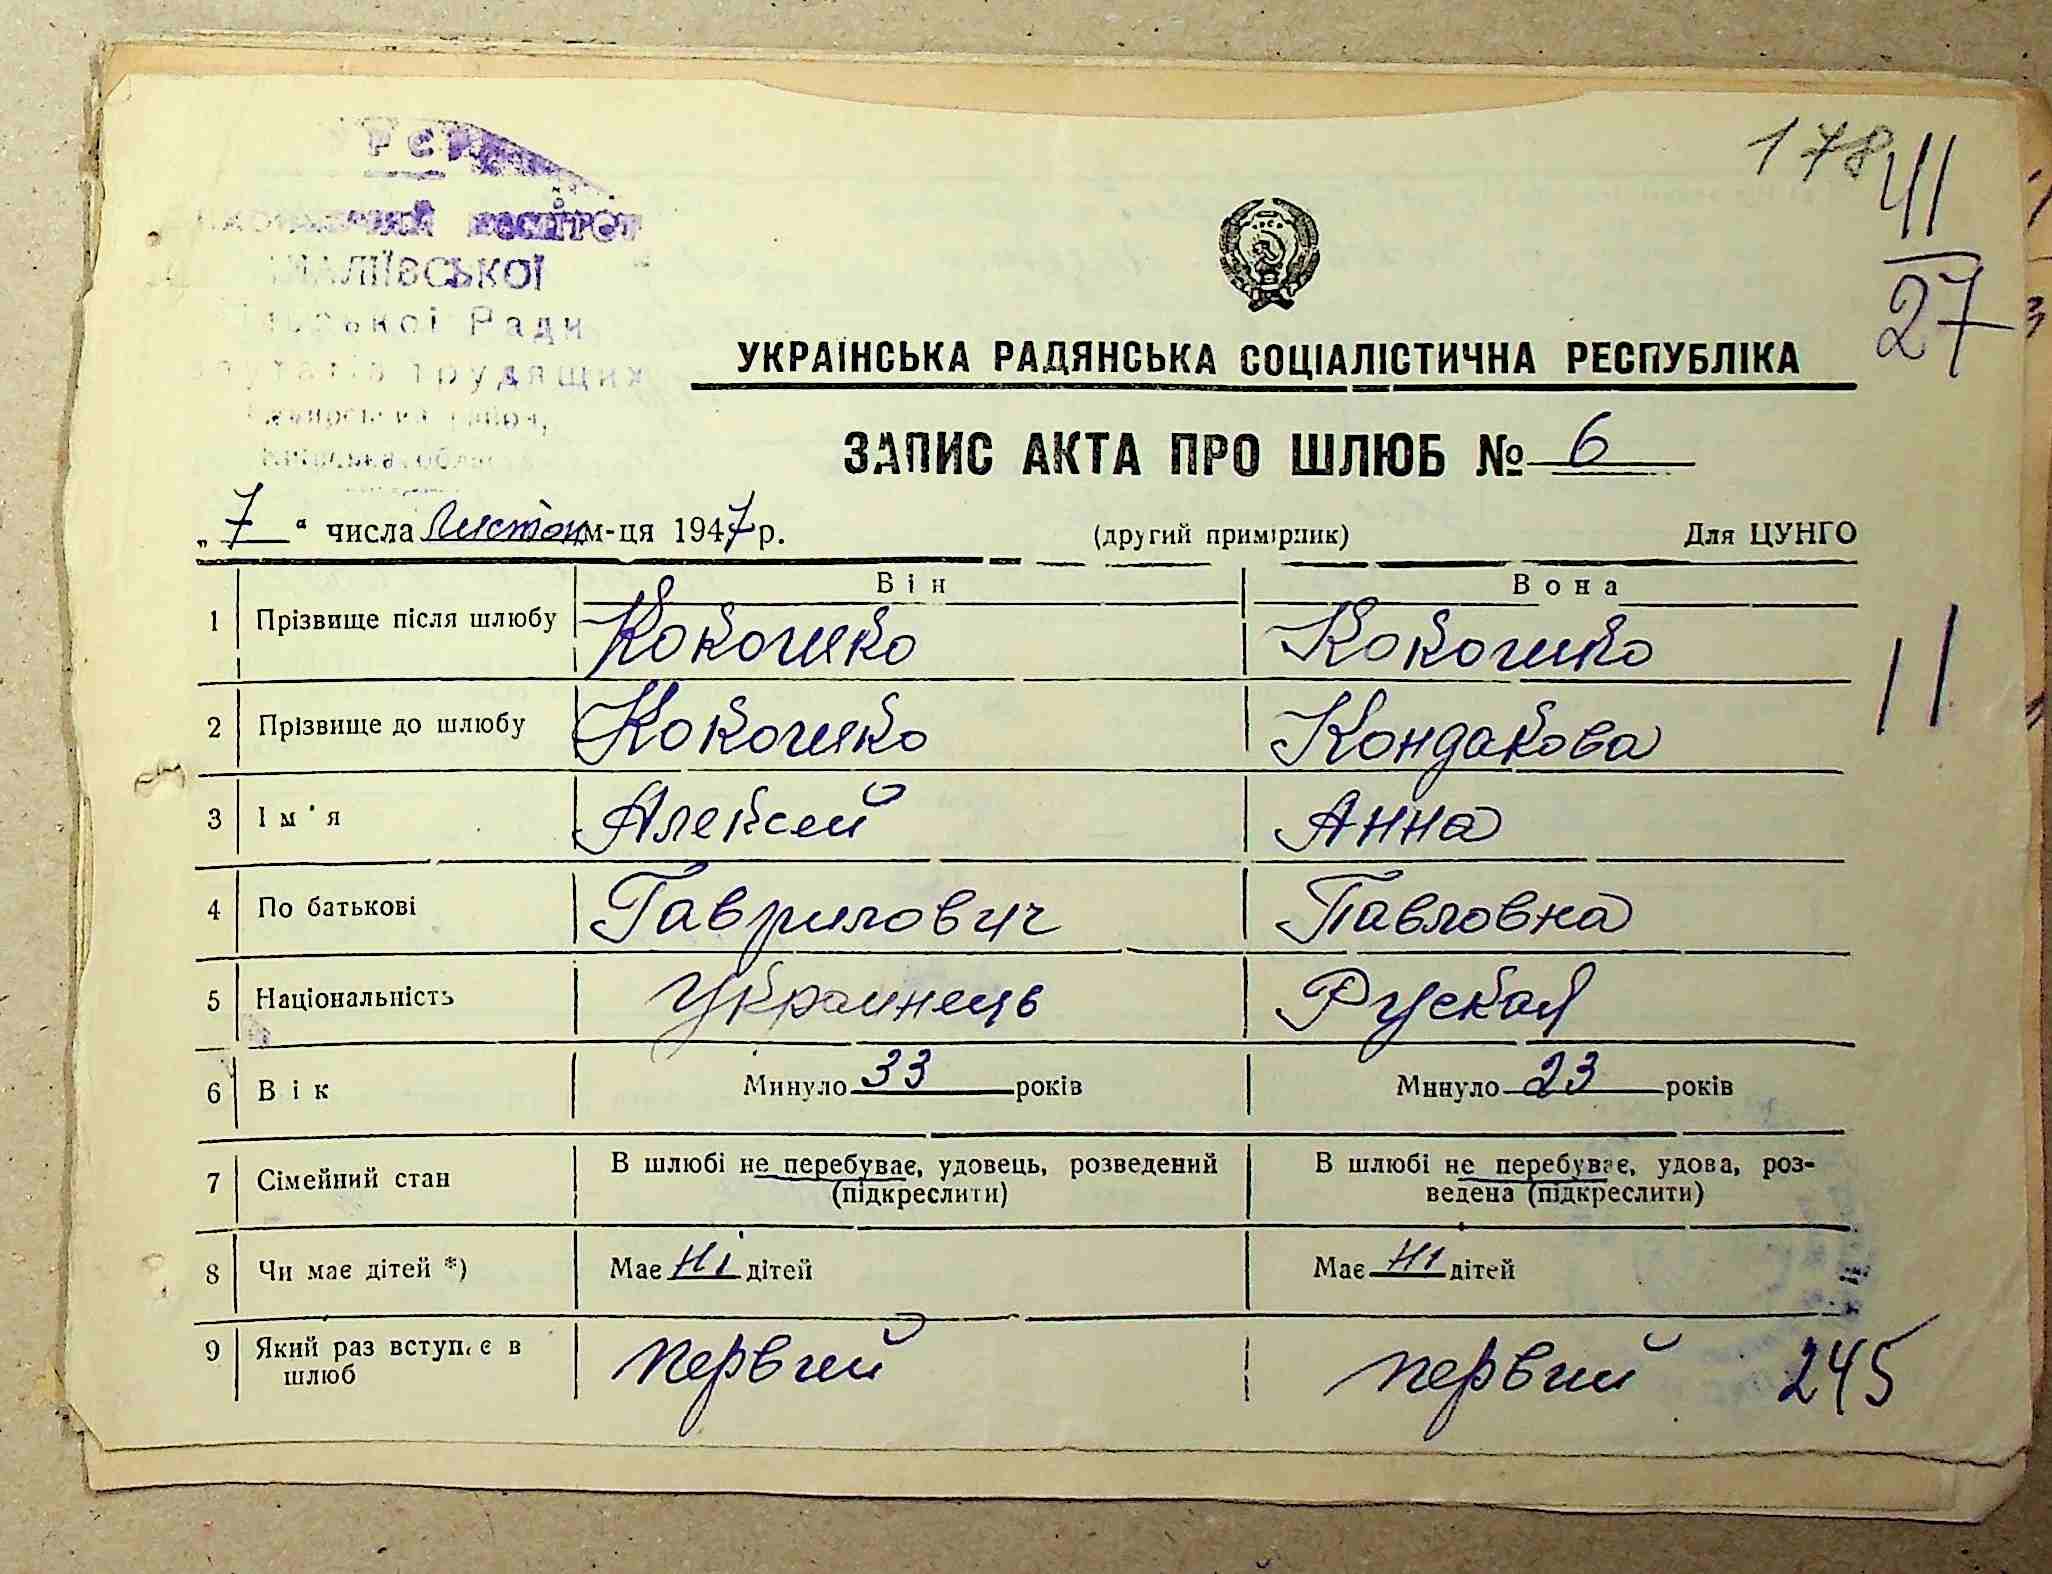 178
41
27
РСР
КОМІТЕТ
Ради
трудящих
УКРАЇНСЬКА РАДЯНСЬКА СОЦІАЛІСТИЧНА РЕСПУБЛІКА
ЗАПИС АКТА ПРО ШЛЮБ № 6
„7“ числа Листоп м-ця 1947 р. (другий примірник) Для ЦУНГО
Він Вона
1 Прізвище після шлюбу Кокочико Кокочико
11
2 Прізвище до шлюбу Кокочико Кондакова
3 Ім'я Алексей Анна
4 По батькові Гаврилович Павловна
5 Національність Украинець Руская
6 Вік Минуло 33 років Минуло 23 років
7 Сімейний стан В шлюбі не перебуває, удовець, розведений В шлюбі не перебуває, удова, роз-
(підкреслити) ведена (підкреслити)
8 Чи має дітей *) Має Ні дітей Має Ні дітей
9 Який раз вступає в первий первий 245
шлюб